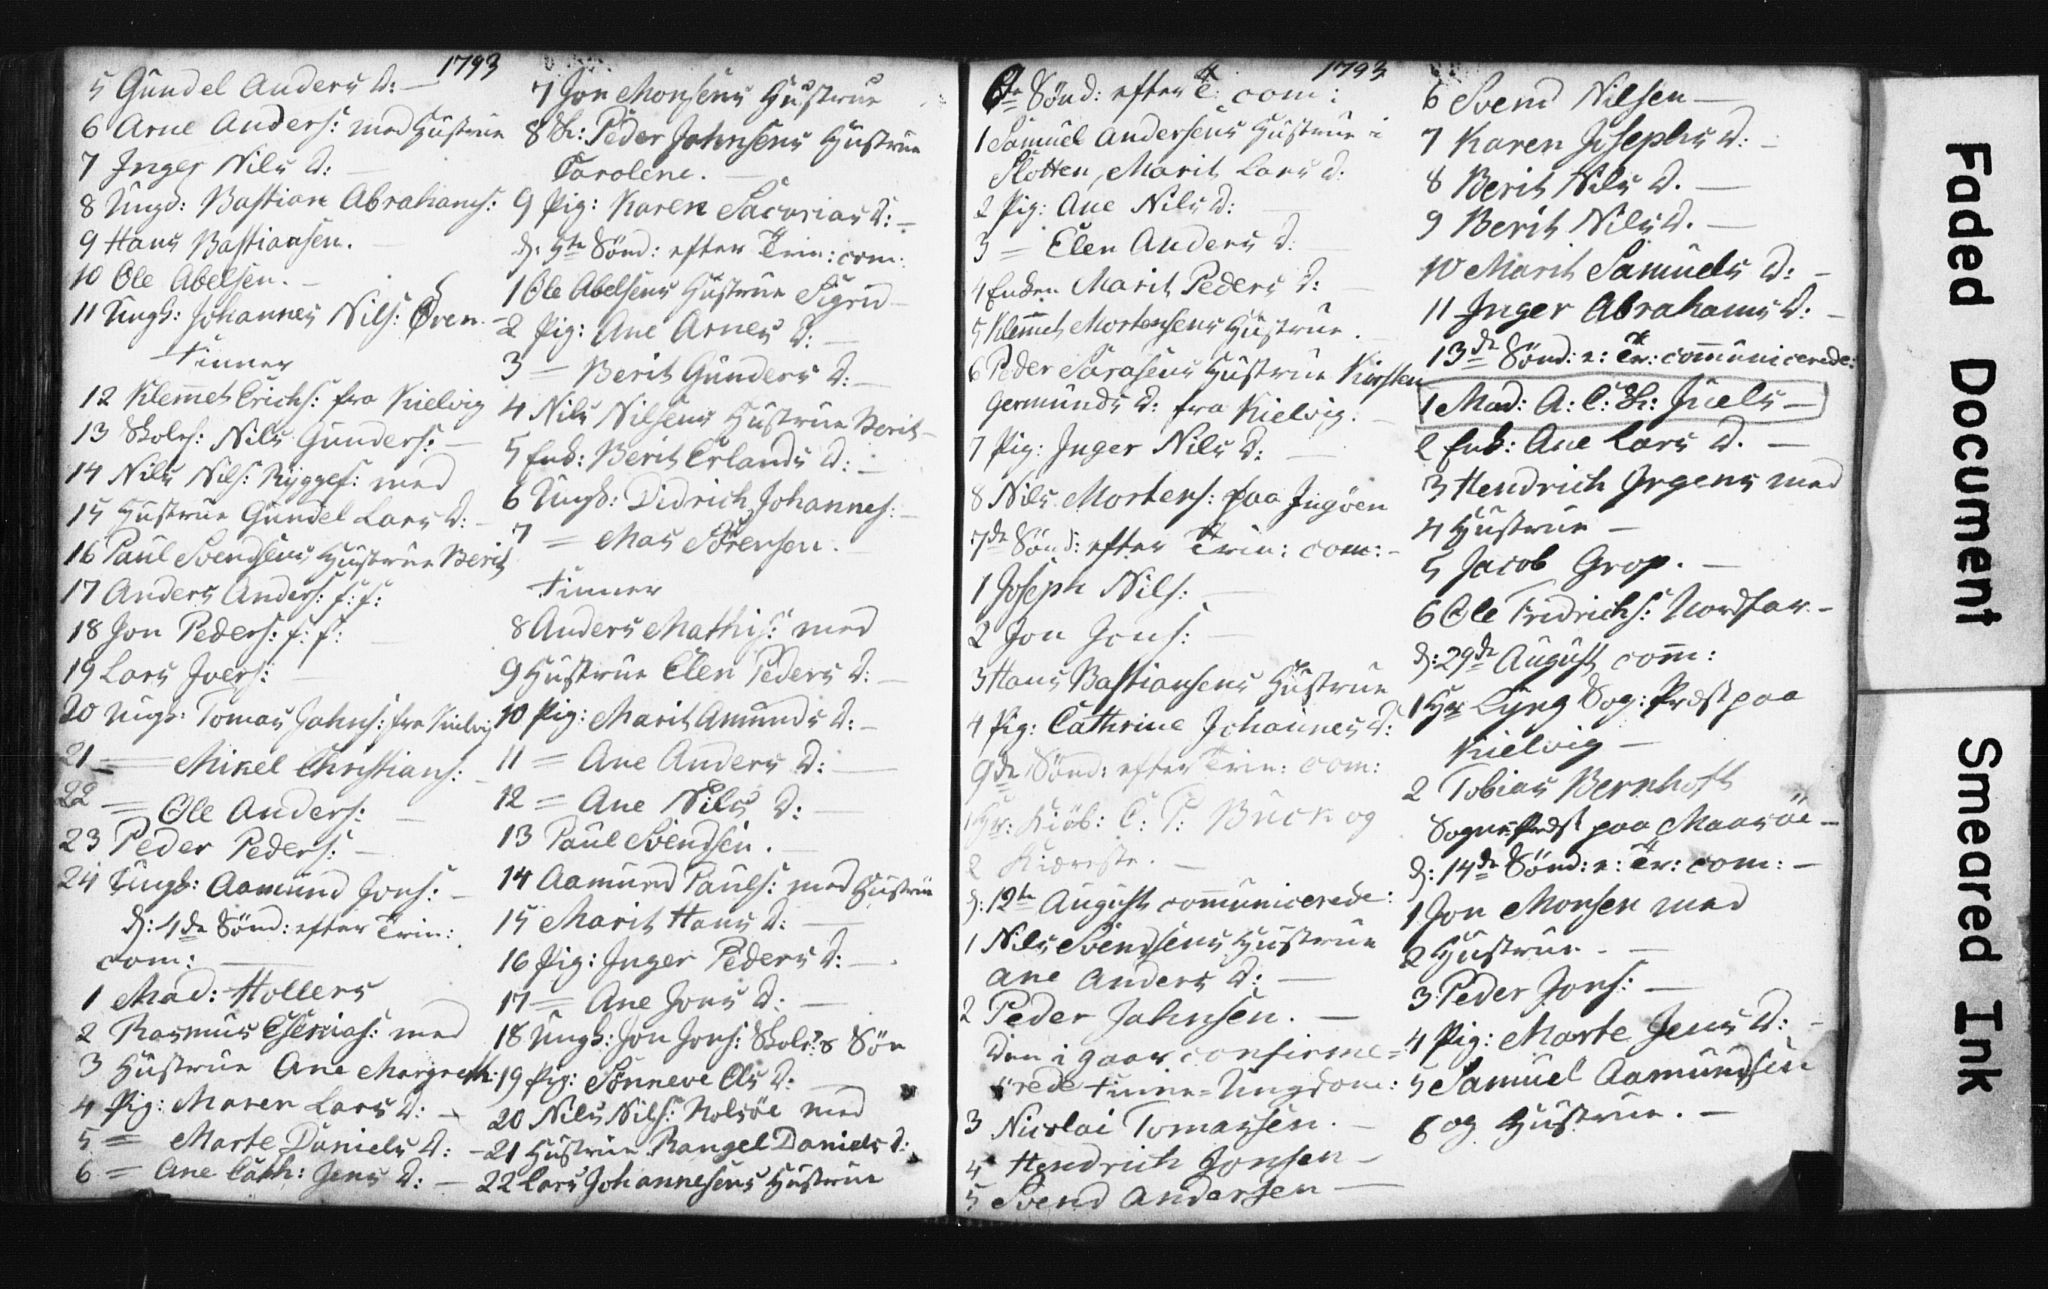 1793
5 Gundel Anders D: —
6 Arne Anders: med Hustrue
7 Inger Nils D: —
8 Ungk: Bastian Abrahams:
9 Hans Bastiansen. —
10 Ole Abelsen. —
11 Ungk: Johannes Nils: Øren —
Finner
12 Klemet Erichs: fra Kielvig
13 Skolem: Nils Gunders: —
14 Nils Nils: Ryggef: med
15 Hustrue Gundel Lars D: —
16 Paul Svendsens Hustrue Berit
17 Anders Anders: f: f:
18 Jon Peders: f: f: —
19 Lars Ivers: —
20 Ungk: Tomas Jahns: fra Kielvig
21 = Mikel Christians: —
22 = Ole Anders: —
23 Peder Peders: —
24 Ungk: Aamund Jons: —
d: 4de Sønd: efter Trin:
com: —
1 Mad: Hollers
2 Rasmus Eserias: med
3 Hustrue Ane Margreth:
4 Pig: Maren Lars D: —
5 = Marte Daniels D: —
6 = Ane Cath: Jens D: —
7 Jon Monsens Hustrue
8 Sr: Peder Jahnsens Hustrue
Carolene. —
9 Pig: Karen Sacarias D: —
d: 5te Sønd: efter Trin: com:
1 Ole Abelsens Hustrue Sigrid —
2 Pig: Ane Arnes D: —
3 = Berit Gunders D: —
4 Nils Nilsens Hustrue Berit —
5 Enk: Berit Erlands D: —
6 Ungk: Didrich Johannes: —
7 = Mas Sörensen. —
Finner
8 Anders Mathis: med
9 Hustrue Elen Peders D: —
10 Pig: Marit Amunds D: —
11 = Ane Anders D: —
12 = Ane Nils D: —
13 Paul Svendsen. —
14 Aamund Pauls: med Hustrue
15 Marit Hans D: —
16 Pig: Inger Peders D: —
17 = Ane Jons D: —
18 Ungk: Jon Jons: Skolem: Søn
19 Pig: Sønneve Ols D: —
20 Nils Nils: Kolsöe med
21 Hustrue Rangel Daniels D:
22 Lars Johannesens Hustrue
1793
6te Sønd: efter T: com:
1 Samuel Andersens Hustrue i
Slotten, Marit Lars D:
2 Pig: Ane Nils D: —
3 = Elen Anders D:
4 Enken Marit Peders D: —
5 Klemet Mortensens Hustrue. —
6 Peder Sarasens Hustrue Kirsten
Germunds D: fra Kielvig. —
7 Pig: Inger Nils D: —
8 Nils Mortens: paa Ingöen
7de Sønd: efter Trin: com: —
1 Joseph Nils: —
2 Jon Jons: —
3 Hans Bastiansens Hustrue
4 Pig: Cathrine Johannes D:
9de Sønd: efter Trin: com:
1 Hr: Kiöb: C: P: Buck og
2 Kiæreste. —
d: 12te August communicerede:
1 Nils Svendsens Hustrue
Ane Anders D: —
2 Peder Jahnsen. —
Den i gaar confirme=
rede Finne=Ungdom:
3 Nicolai Tomassen. —
4 Hendrich Jonsen —
5 Svend Andersen —
6 Svend Nilsen —
7 Karen Josephs D: —
8 Berit Nils D. —
9 Berit Nils D. —
10 Marit Samuels D: —
11 Inger Abrahams D: —
13de Sønd: e: Tr: communicerede:
1 Mad: A: C: Sr: Juels —
2 Enk: Ane Lars D. —
3 Hendrich Jrgens med
4 Hustrue —
5 Jacob Grop. —
6 Ole Fridrichs: Nordfar —
d: 29de August com:
1 Hr Lyng Sog: Præst paa
Kielvig —
2 Tobias Bernhoft
Sogne Præst paa Maasöe —
d: 14de Sønd: e: Tr: com: —
1 Jon Monsen med
2 Hustrue. —
3 Peder Jons: —
4 Pig: Marte Jens D: —
5 Samuel Aamundsen
6 og Hustrue. —
Faded Document
Smeared Ink